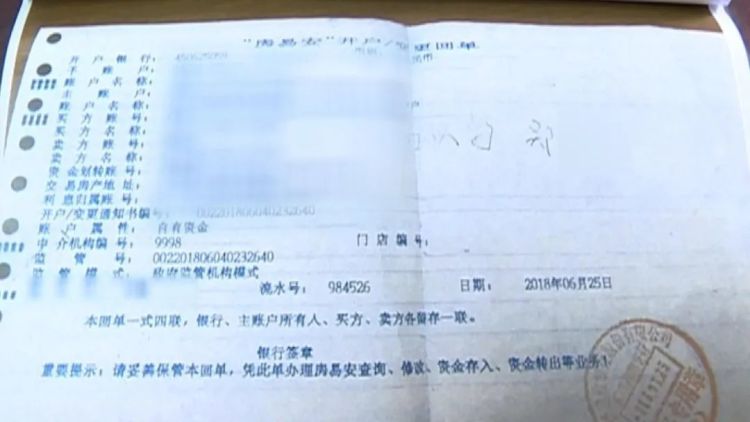 "房易安"开户/变更回单
开户银行: 450625059
子账户:
账户名称:
主账户:
账户名称:
买方账号:
买方名称:
卖方账号:
卖方名称:
资金划转账号:
交易房产地址:
利息归属账号:
开户/变更通知书编号: 002201806040232640
账户属性: 自有资金
中介机构编号: 9998 门店编号:
监管号: 002201806040232640
监管模式: 政府监管机构模式
流水号: 984526 日期: 2018年06月25日
本回单一式四联，银行、主账户所有人、买方、卖方各留存一联。
银行签章
重要提示: 请妥善保管本回单，凭此单办理房易安查询、修改、资金存入、资金转出等业务!